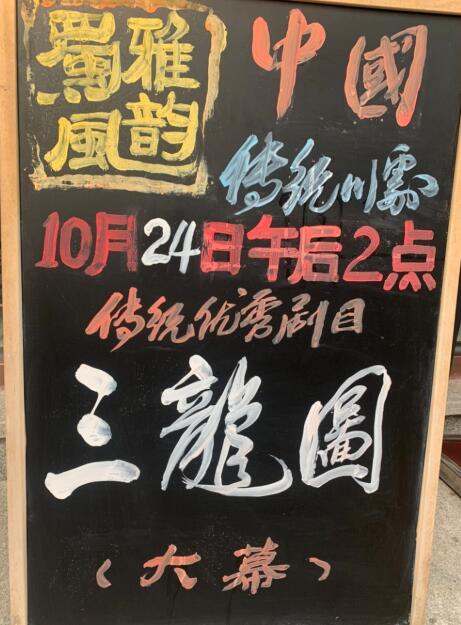 蜀風雅韵
中國
传统川剧
10月24日午后2点
传统优秀剧目
三龍圖
（大幕）